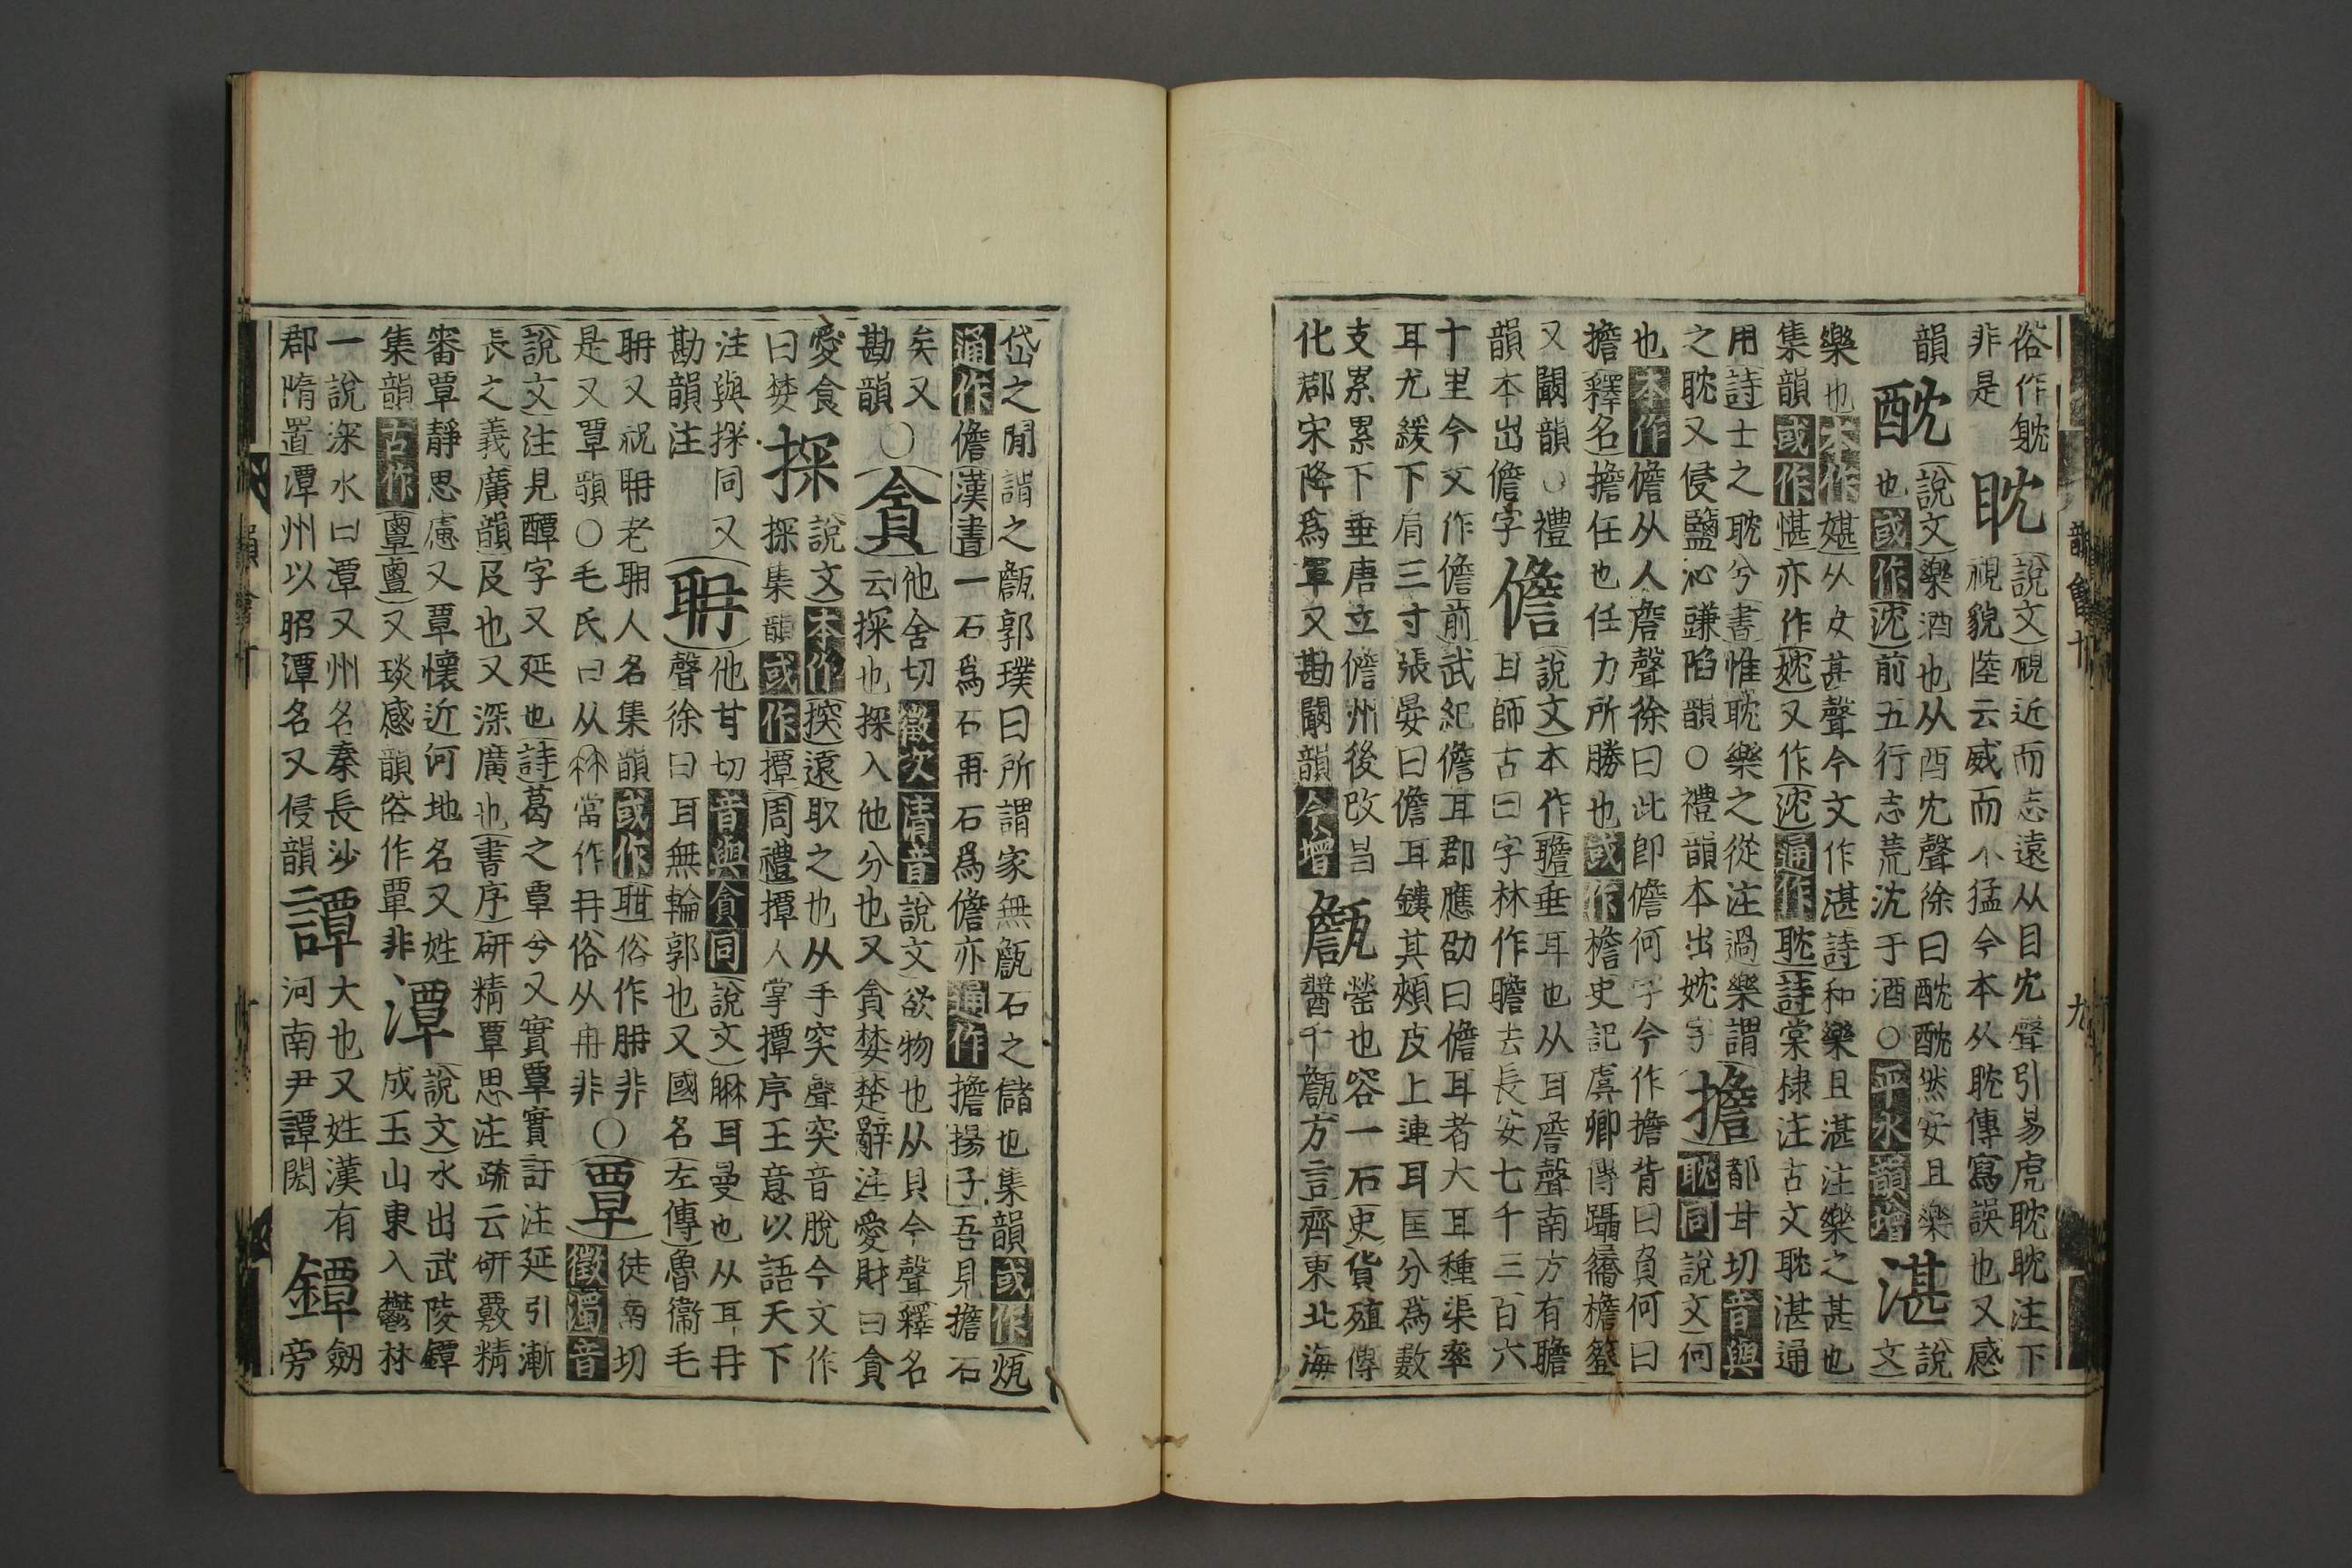 俗作躭
非是
眈
說文視近而志遠从目冘聲引易虎眈眈注下
視貌陸云威而不猛今本从耽傳寫誤也又感
韻
酖
說文樂酒也从酉冘聲徐曰酖酖然安且樂
也或作沈前五行志荒沈于酒○平水韻增
湛
說
文
樂也本作媅从女甚聲今文作湛詩和樂且湛注樂之甚也
集韻或作愖亦作妉又作沈通作耽詩棠棣注古文耽湛通
用詩士之耽兮書惟耽樂之從注過樂謂
之耽又侵鹽沁豏陷韻○禮韻本出妉字
擔
都甘切音與
耽同說文何
也本作儋从人詹聲徐曰此卽儋何字今作擔背曰負何曰
擔釋名擔任也任力所勝也或作檐史記虞卿傳躡屩檐簦
又闞韻○禮
韻本出儋字
儋
說文本作聸垂耳也从耳詹聲南方有聸
耳師古曰字林作聸去長安七千三百六
十里今文作儋前武紀儋耳郡應劭曰儋耳者大耳種渠率
耳尤緩下肩三寸張晏曰儋耳鏤其頰皮上連耳匡分爲數
支累累下垂唐立儋州後改昌
化郡宋降爲軍又勘闞韻今增
甔
罃也容一石史貨殖傳
醬千甔方言齊東北海
岱之閒謂之甔郭璞曰所謂家無甔石之儲也集韻或作㼭
通作儋漢書一石爲石再石爲儋亦通作擔揚子吾見擔石
矣又
勘韻
○貪
他含切徵次清音說文欲物也从貝今聲釋名
云探也探入他分也又貪婪楚辭注愛財曰貪
愛食
曰婪
探
說文本作撢遠取之也从手罙聲罙音脫今文作
探集韻或作撢周禮撢人掌撢序王意以語天下
注與探同又
勘韻注
聃
他甘切音與貪同說文䎳耳曼也从耳冉
聲徐曰耳無輪郭也又國名左傳魯衞毛
聃又祝聃老聃人名集韻或作耼俗作𦕈非○
是又覃韻○毛氏曰从𠕋當作冄俗从冉非
覃
徒南切
徵濁音
說文注見醰字又延也詩葛之覃兮又實覃實訏注延引漸
長之義廣韻及也又深廣也書序研精覃思注疏云研覈精
審覃靜思慮又覃懷近河地名又姓
集韻古作𪉷𪉧又琰感韻俗作覃非
潭
說文水出武陵鐔
成玉山東入鬱林
一說深水曰潭又州名秦長沙
郡隋置潭州以昭潭名又侵韻
譚
大也又姓漢有
河南尹譚閎
鐔
劒
旁